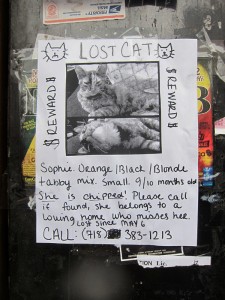 LOST CAT
$ REWARD $
$ REWARD $
Sophie. Orange/Black/Blonde
tabby mix. Small. 9/10 months old
She is chipped! Please call
if found, she belongs to a
loving home who misses her.
Lost since MAY 6
CALL: (718) 383-1213